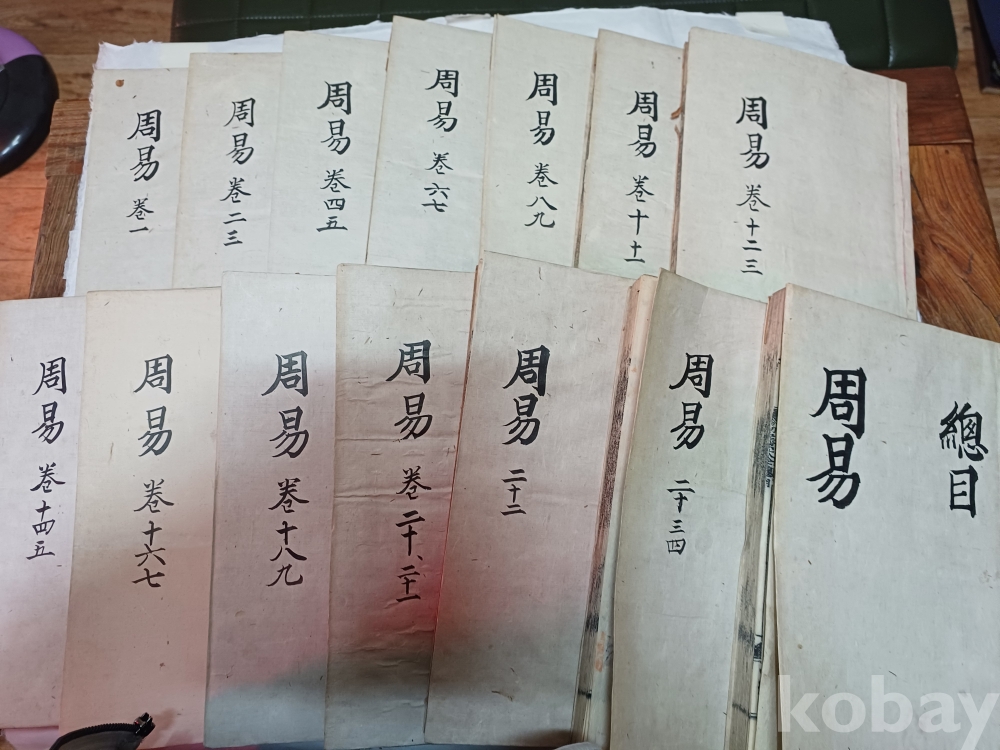 周易 卷一
周易 卷二三
周易 卷四五
周易 卷六七
周易 卷八九
周易 卷十十一
周易 卷十二三
周易 卷十四五
周易 卷十六七
周易 卷十八九
周易 卷二十、二十一
周易 二十二
周易 二十三四
周易
總目
kobay